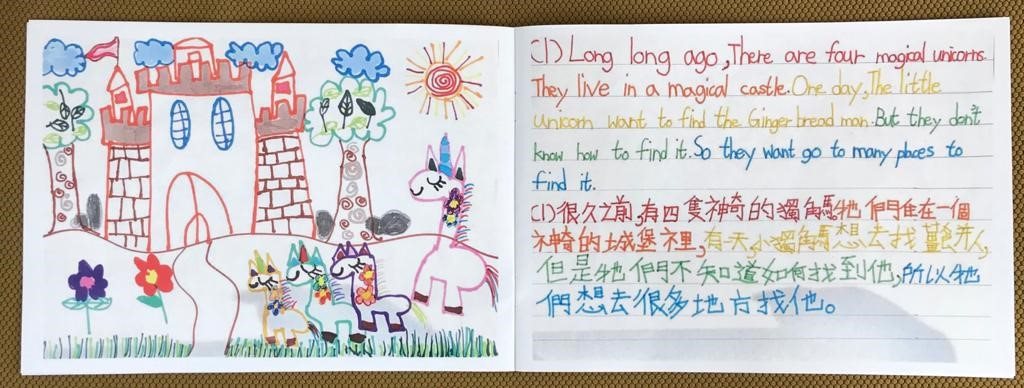 (1) Long long ago, There are four magical unicorns.
They live in a magical castle. One day, The little
Unicorn want to find the Ginger bread man. But they don't
know how to find it. So they want go to many places to
find it.
(1)很久之前,有四隻神奇的獨角馬,牠們住在一個
神奇的城堡裡,有一天,小獨角馬想去找薑餅人,
但是牠們不知道如何找到他,所以牠
們想去很多地方找他。